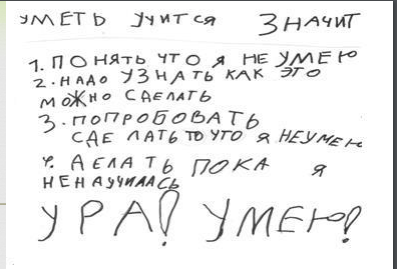 УМЕТЬ УЧИТСЯ ЗНАЧИТ
1. ПОНЯТЬ ЧТО Я НЕ УМЕЮ
2. НАДО УЗНАТЬ КАК ЭТО
МОЖНО СДЕЛАТЬ
3. ПОПРОБОВАТЬ
СДЕ ЛАТЬ ТО ЧТО Я НЕУМЕЮ
4. ДЕЛАТЬ ПОКА Я
НЕНАУЧИЛАСЬ
УРА! УМЕЮ!